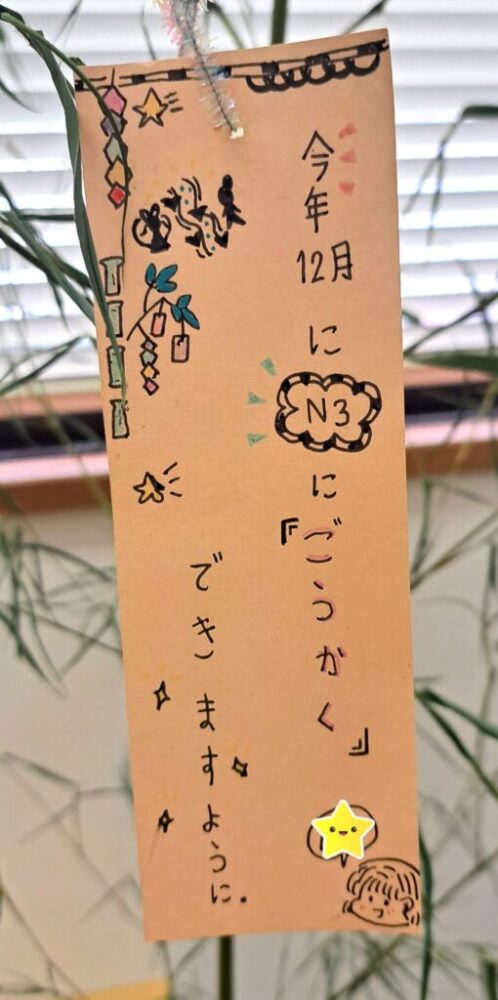 今年12月にN3に『ごうかく』
できますように.